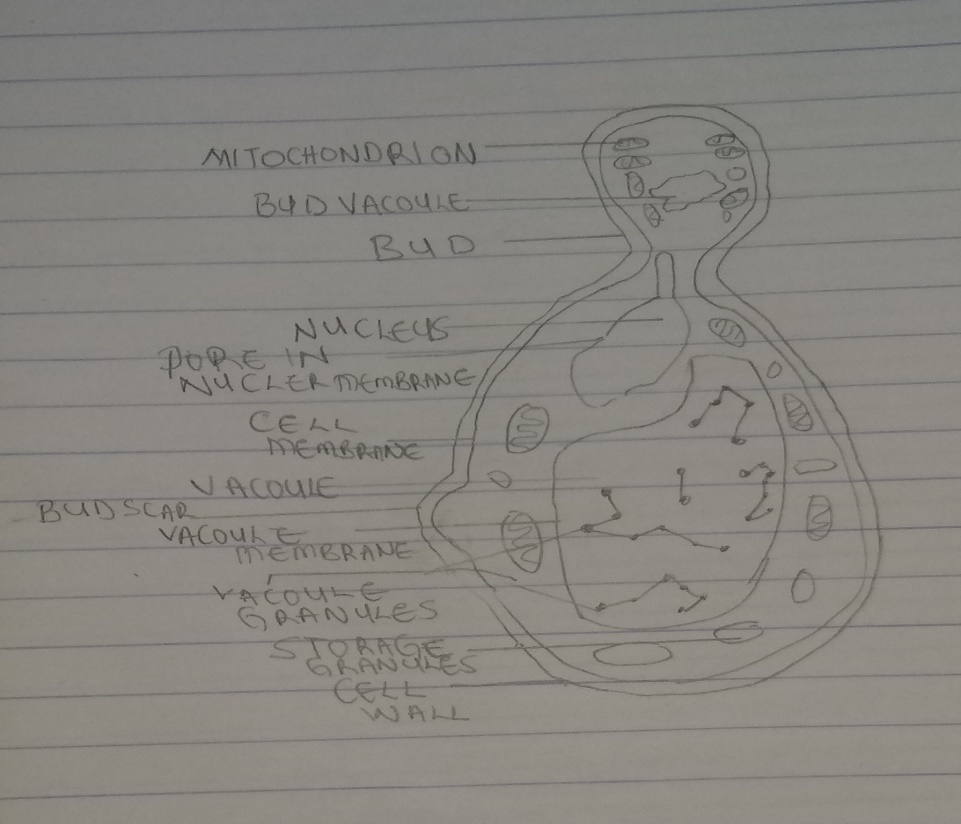 MITOCHONDRION
BUD VACOULE
BUD
NUCLEUS
PORE IN
NUCLER MEMBRANE
CELL
MEMBRANE
VACOULE
BUDSCAR
VACOULE
MEMBRANE
VACOULE
GRANULES
STORAGE
GRANULES
CELL
WALL